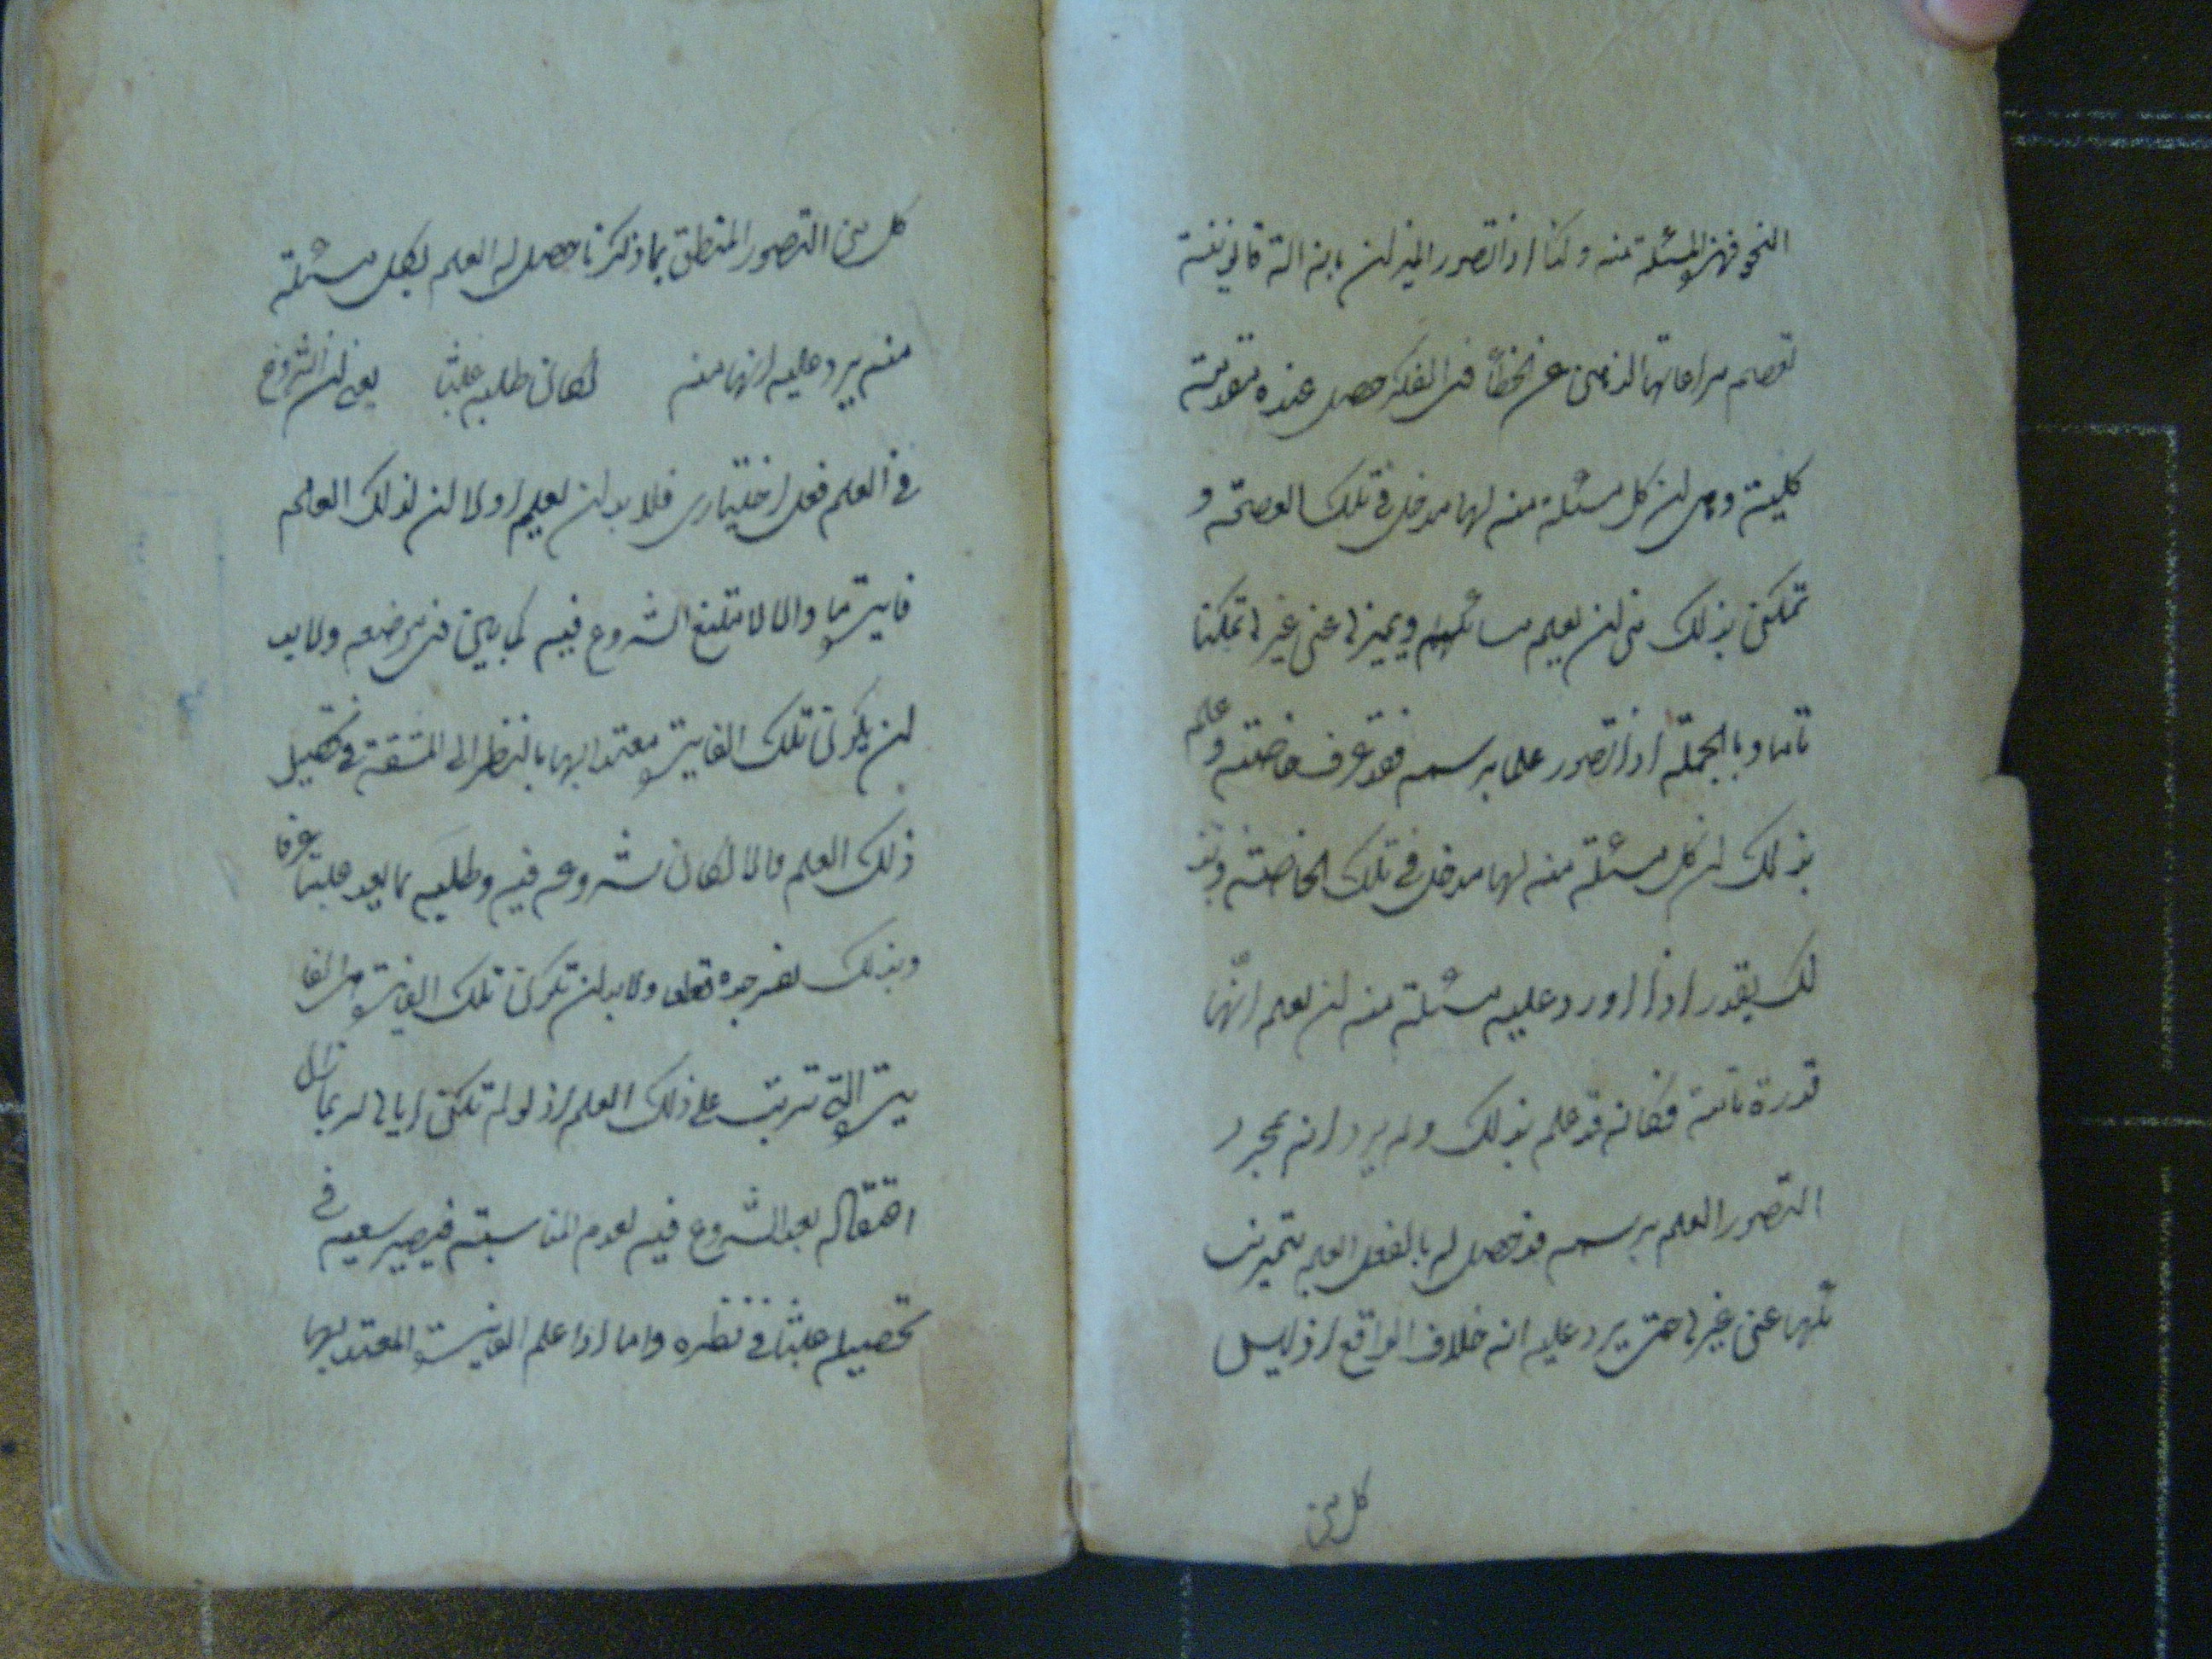 النحو فهذه المسئلة منه وكذا اذا تصور الميزان بانه الة قانونية
تعصم مراعاتها الذهن عن الخطأ فى الفكر حصل عنده مقدمة
كلية وهى ان كل مسئلة منه لها مدخل فى تلك العصمة و
تمكن بذلك من ان يعلم مسائله ويميزها عن غيرها تمكنا
تاما وبالجملة اذا تصور علما برسمه فقد عرف خاصته وعلم
بذلك ان كل مسئلة منه لها مدخل فى تلك الخاصة وبذ
لك يقدر اذا اورد عليه مسئلة منه ان يعلم انها
قدرة تامة فكانه قد علم بذلك ولم يرد انه بمجرد
التصور العلم برسمه قد حصل له بالفعل العلم بتميز
كلها عن غيرها حتى يرد عليه انه خلاف الواقع اذ ليس
كل من
كل من التصور المنطق بما ذكر نا حصل له العلم بكل مسئلة
منه يرد عليه انها منه لكان طلبه عبثا يعنى ان الشروع
فى العلم فعل اختيارى فلا بد ان يعلم اولا ان لذلك العلم
فايدة ما والا لامتنع الشروع فيه كما بين فى موضعه ولا بد
ان يكون تلك الفايدة معتدا بها بالنظر الى المشقة فى تحصيل
ذلك العلم والا لكان شروعه فيه وطلبه مما يعد عبثا عرفا
وبذلك يفتر جده ولا بد ان تكون تلك الفايدة هى الفا
يدة التى تترتب على ذلك العلم اذ لو لم تكن اياها لربما زال
اعتقاده بعد الشروع فيه لعدم المناسبة فيصير سعيه فى
تحصيله عبثا فى نظره واما اذا علم الفايدة المعتد بها